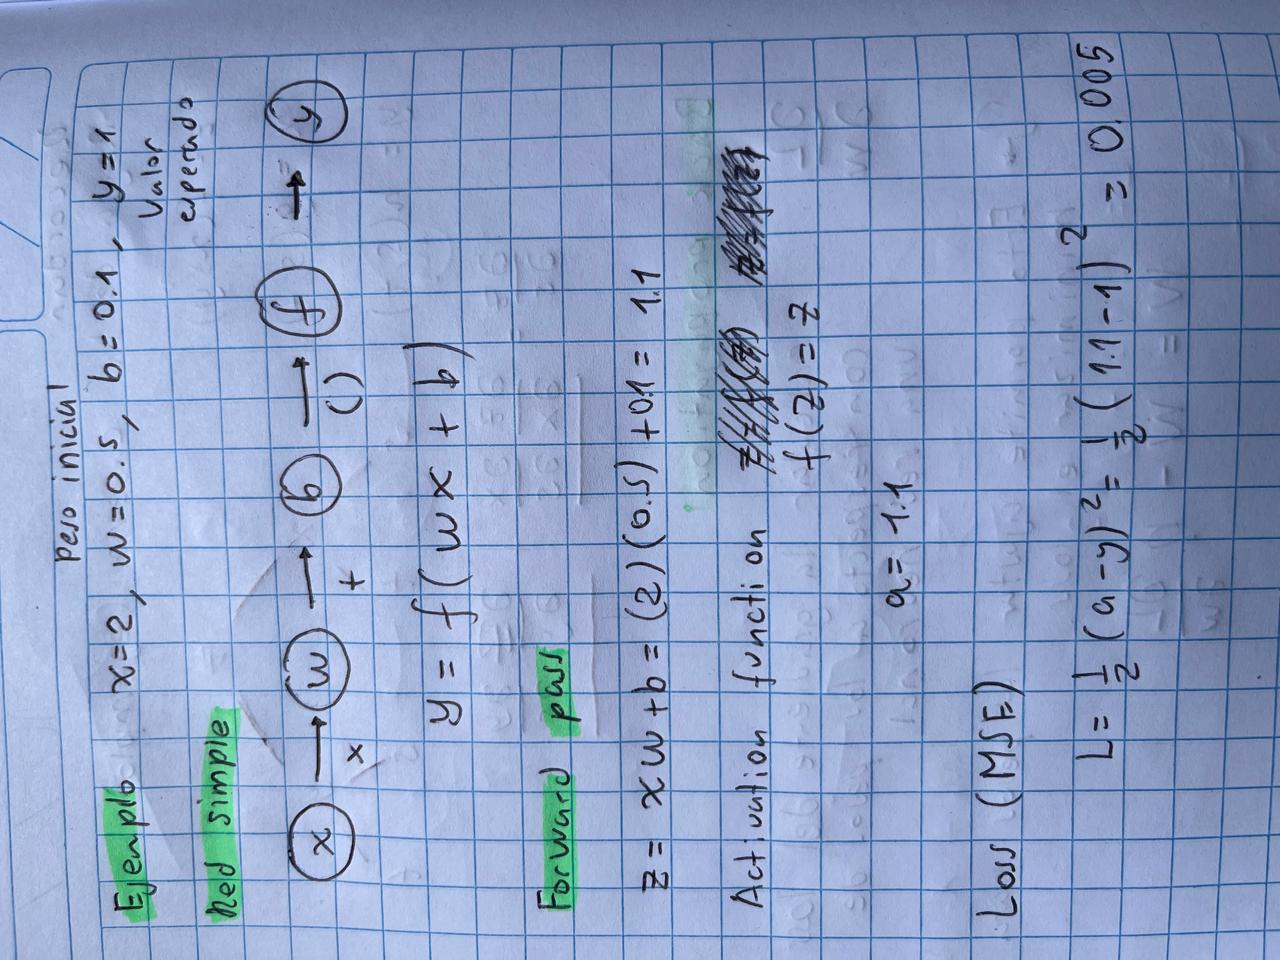 Peso inicial
Ejemplo x=2, w=0.5, b=0.1, y=1
Valor
esperado
Red simple
x → w → b → f → y
x + ()
y = f(wx + b)
Forward pass
z = xw+b = (2)(0.5) +0.1 = 1.1
Activation function
f(z) = z
a = 1.1
Loss (MSE)
L = 1/2 (a-y)² = 1/2 (1.1-1)² = 0.005